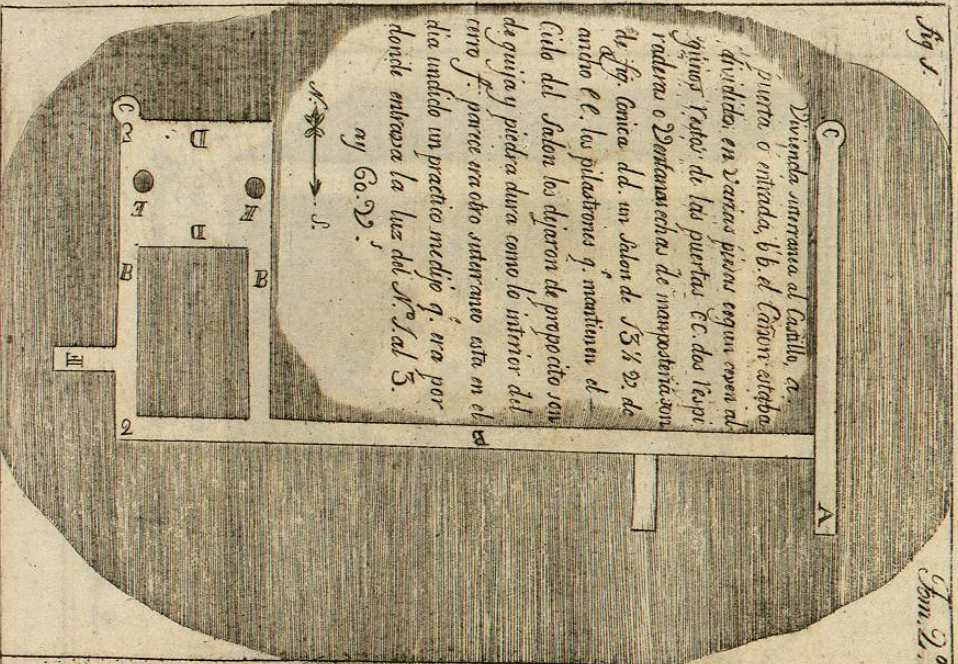 fig 1.
Tom. 2.º
Vivienda suterranea al Castillo, a.
puerta ó entrada, b b. el Cañon estaba
dividido en varios pisos segun creen al
gunos restos de las puertas c c. dos respi
raderas o Ventanas echas de mamposteria son
de fig. Conica d d. un Salon de 13½ v. de
ancho e e. los pilastrones q. mantienen el
Cielo del Salon los dejaron de propocito son
de guija y piedra dura como lo interior del
cerro f. parece era otro suterraneo esta en el
dia undido un practico me dijo q. era por
donde entrava la luz del N. 1. al 3.
ay 60. V.s
N. S.
C
A
B
B
B
2
D
D
E
E
C
3
F